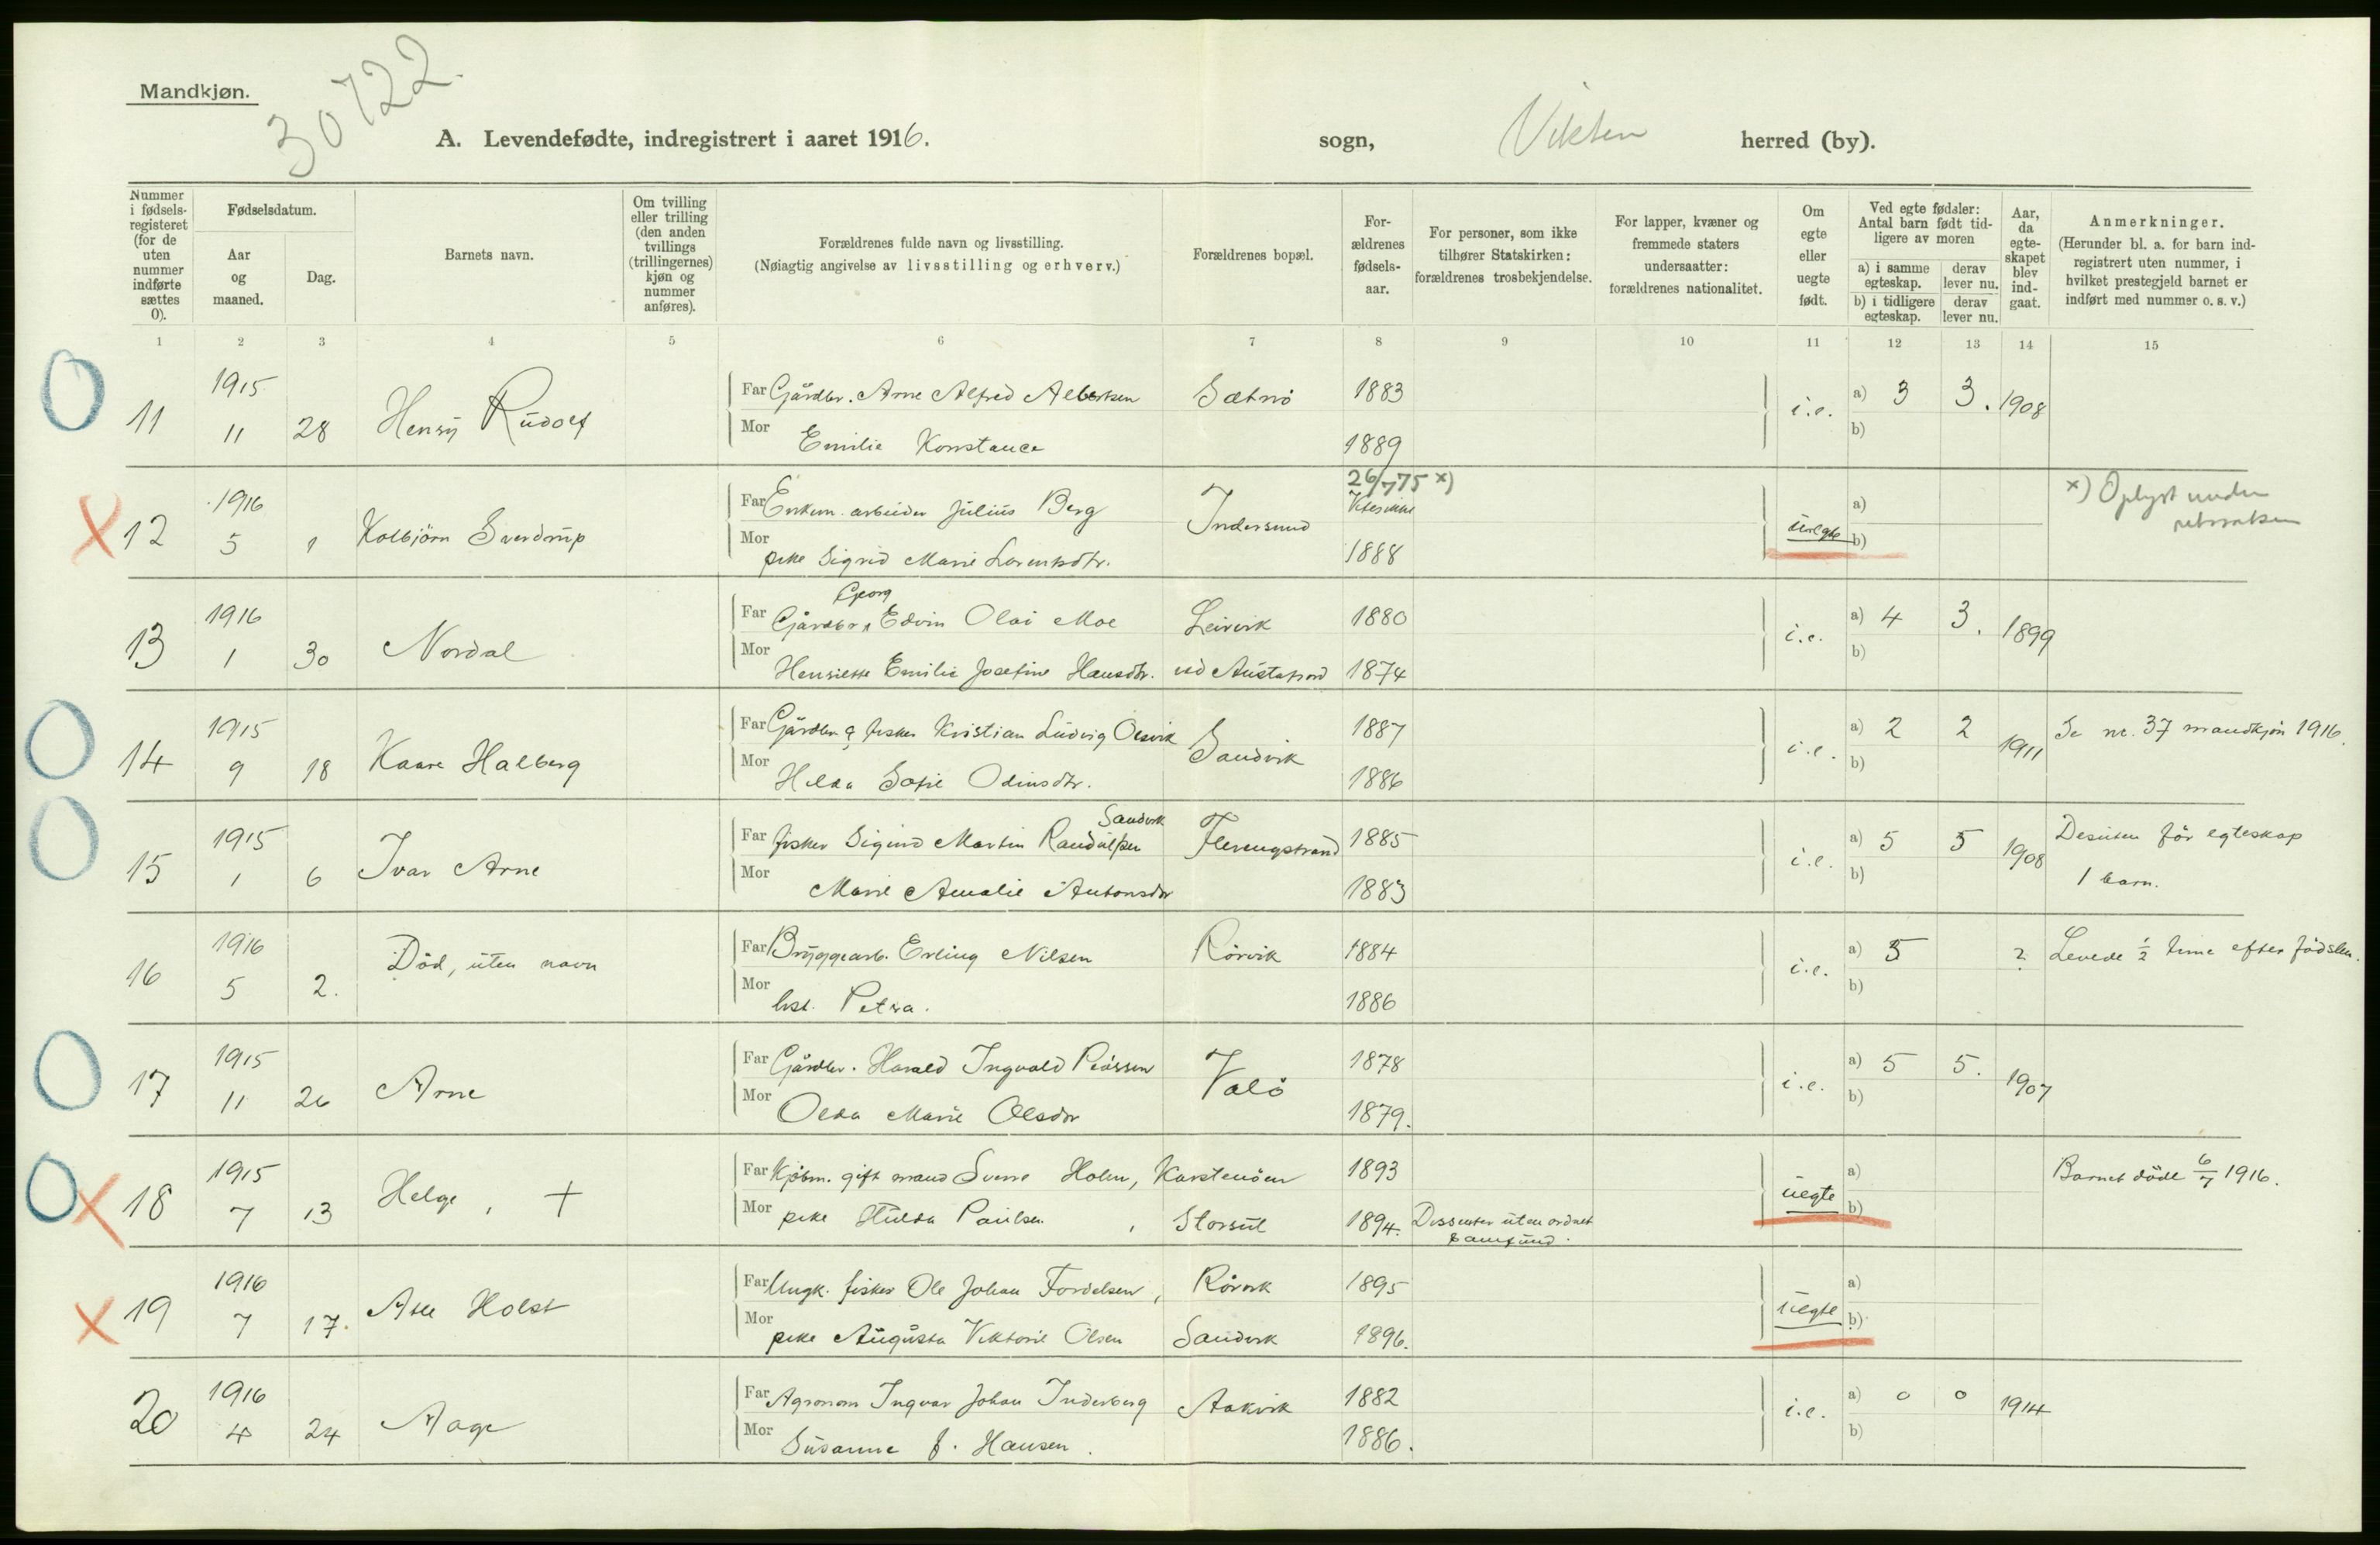 Mandkjøn.
30722.
A. Levendefødte, indregistrert i aaret 1916.
sogn, Vikten herred (by).
Nummer i fødsels-registeret (for de uten nummer indførte sættes 0).
Fødselsdatum.
Aar og maaned.
Dag.
Barnets navn.
Om tvilling eller trilling (den anden tvillings (trillingernes) kjøn og nummer anføres).
Forældrenes fulde navn og livsstilling.
(Nøiagtig angivelse av livsstilling og erhverv.)
Forældrenes bopæl.
For-ældrenes fødsels-aar.
For personer, som ikke tilhører Statskirken: forældrenes trosbekjendelse.
For lapper, kvæner og fremmede staters undersaatter: forældrenes nationalitet.
Om egte eller uegte født.
Ved egte fødsler: Antal barn født tid-ligere av moren
a) i samme egteskap. derav lever nu.
b) i tidligere egteskap. derav lever nu.
Aar, da egte-skapet blev ind-gaat.
Anmerkninger.
(Herunder bl. a. for barn ind-registrert uten nummer, i hvilket prestegjeld barnet er indført med nummer o. s. v.)
1 2 3 4 5 6 7 8 9 10 11 12 13 14 15
11 1915 11 28 Henry Rudolf
Far Gårdbr. Arne Alfred Albertsen Sætnö 1883
Mor Emilie Konstance 1889
i.e. a) 3 3. 1908
b)
12 1916 5 1 Kolbjörn Sverdrup
Far Enkem. arbeider Julius Berg Indersund 26/7 75 x) Vites ikke
Mor pike Sigrid Marie Lorentsdtr. 1888
uegte a)
b)
x) Oplyst under
13 1916 1 30 Nordal
Georg
Far Gårdbr. Edvin Olai Moe Leirvik 1880
Mor Henriette Emilie Josefine Hansdtr. ved Austafjord 1874
i.e. a) 4 3. 1899
b)
14 1915 9 18 Kaare Halberg
Far Gårdbr. & fisker Kristian Ludvig Olsvik Sandvik 1887
Mor Hilda Sofie Odinsdtr. 1886
i.e. a) 2 2 1911
b)
Se nr. 37 mandkjøn 1916.
15 1915 1 6 Ivar Arne
Sandvik
Far fisker Sigurd Martin Randulfsen Flerengstrand 1885
Mor Marie Amalie Antonsdtr 1883
i.e. a) 5 5 1908
b)
Desuten för egteskap
1 barn.
16 1916 5 2. Död, uten navn
Far Bryggearb. Erling Nilsen Rörvik 1884
Mor hst. Petra. 1886
i.e. a) 5 ?
b)
Levede 1/2 time efter födslen.
17 1915 11 26 Arne
Far Gårdbr. Harald Ingvald Valö 1878
Mor Olda Marie Olsdtr 1879.
i.e. a) 5 5. 1907
b)
18 1915 7 13 Helge, +
Far Kjöbm. gift mand Sverre Holm, Karstenöen 1893
Mor pike Hulda Paulsen, Storsul 1894. Dissenter uten ordnet samfund.
uegte a)
b)
Barnet döde 6/7 1916.
19 1916 7 17. Atle Holst
Far Ungk. fisker Ole Johan Fordelsen, Rörvik 1895
Mor pike Augusta Viktorie Olsen Sandvik 1896.
uegte a)
b)
20 1916 4 24 Aage
Far Agronom Ingvar Johan Inderberg Aakvik 1882
Mor Susanne J. Hansen. 1886.
i.e. a) 0 0 1914
b)